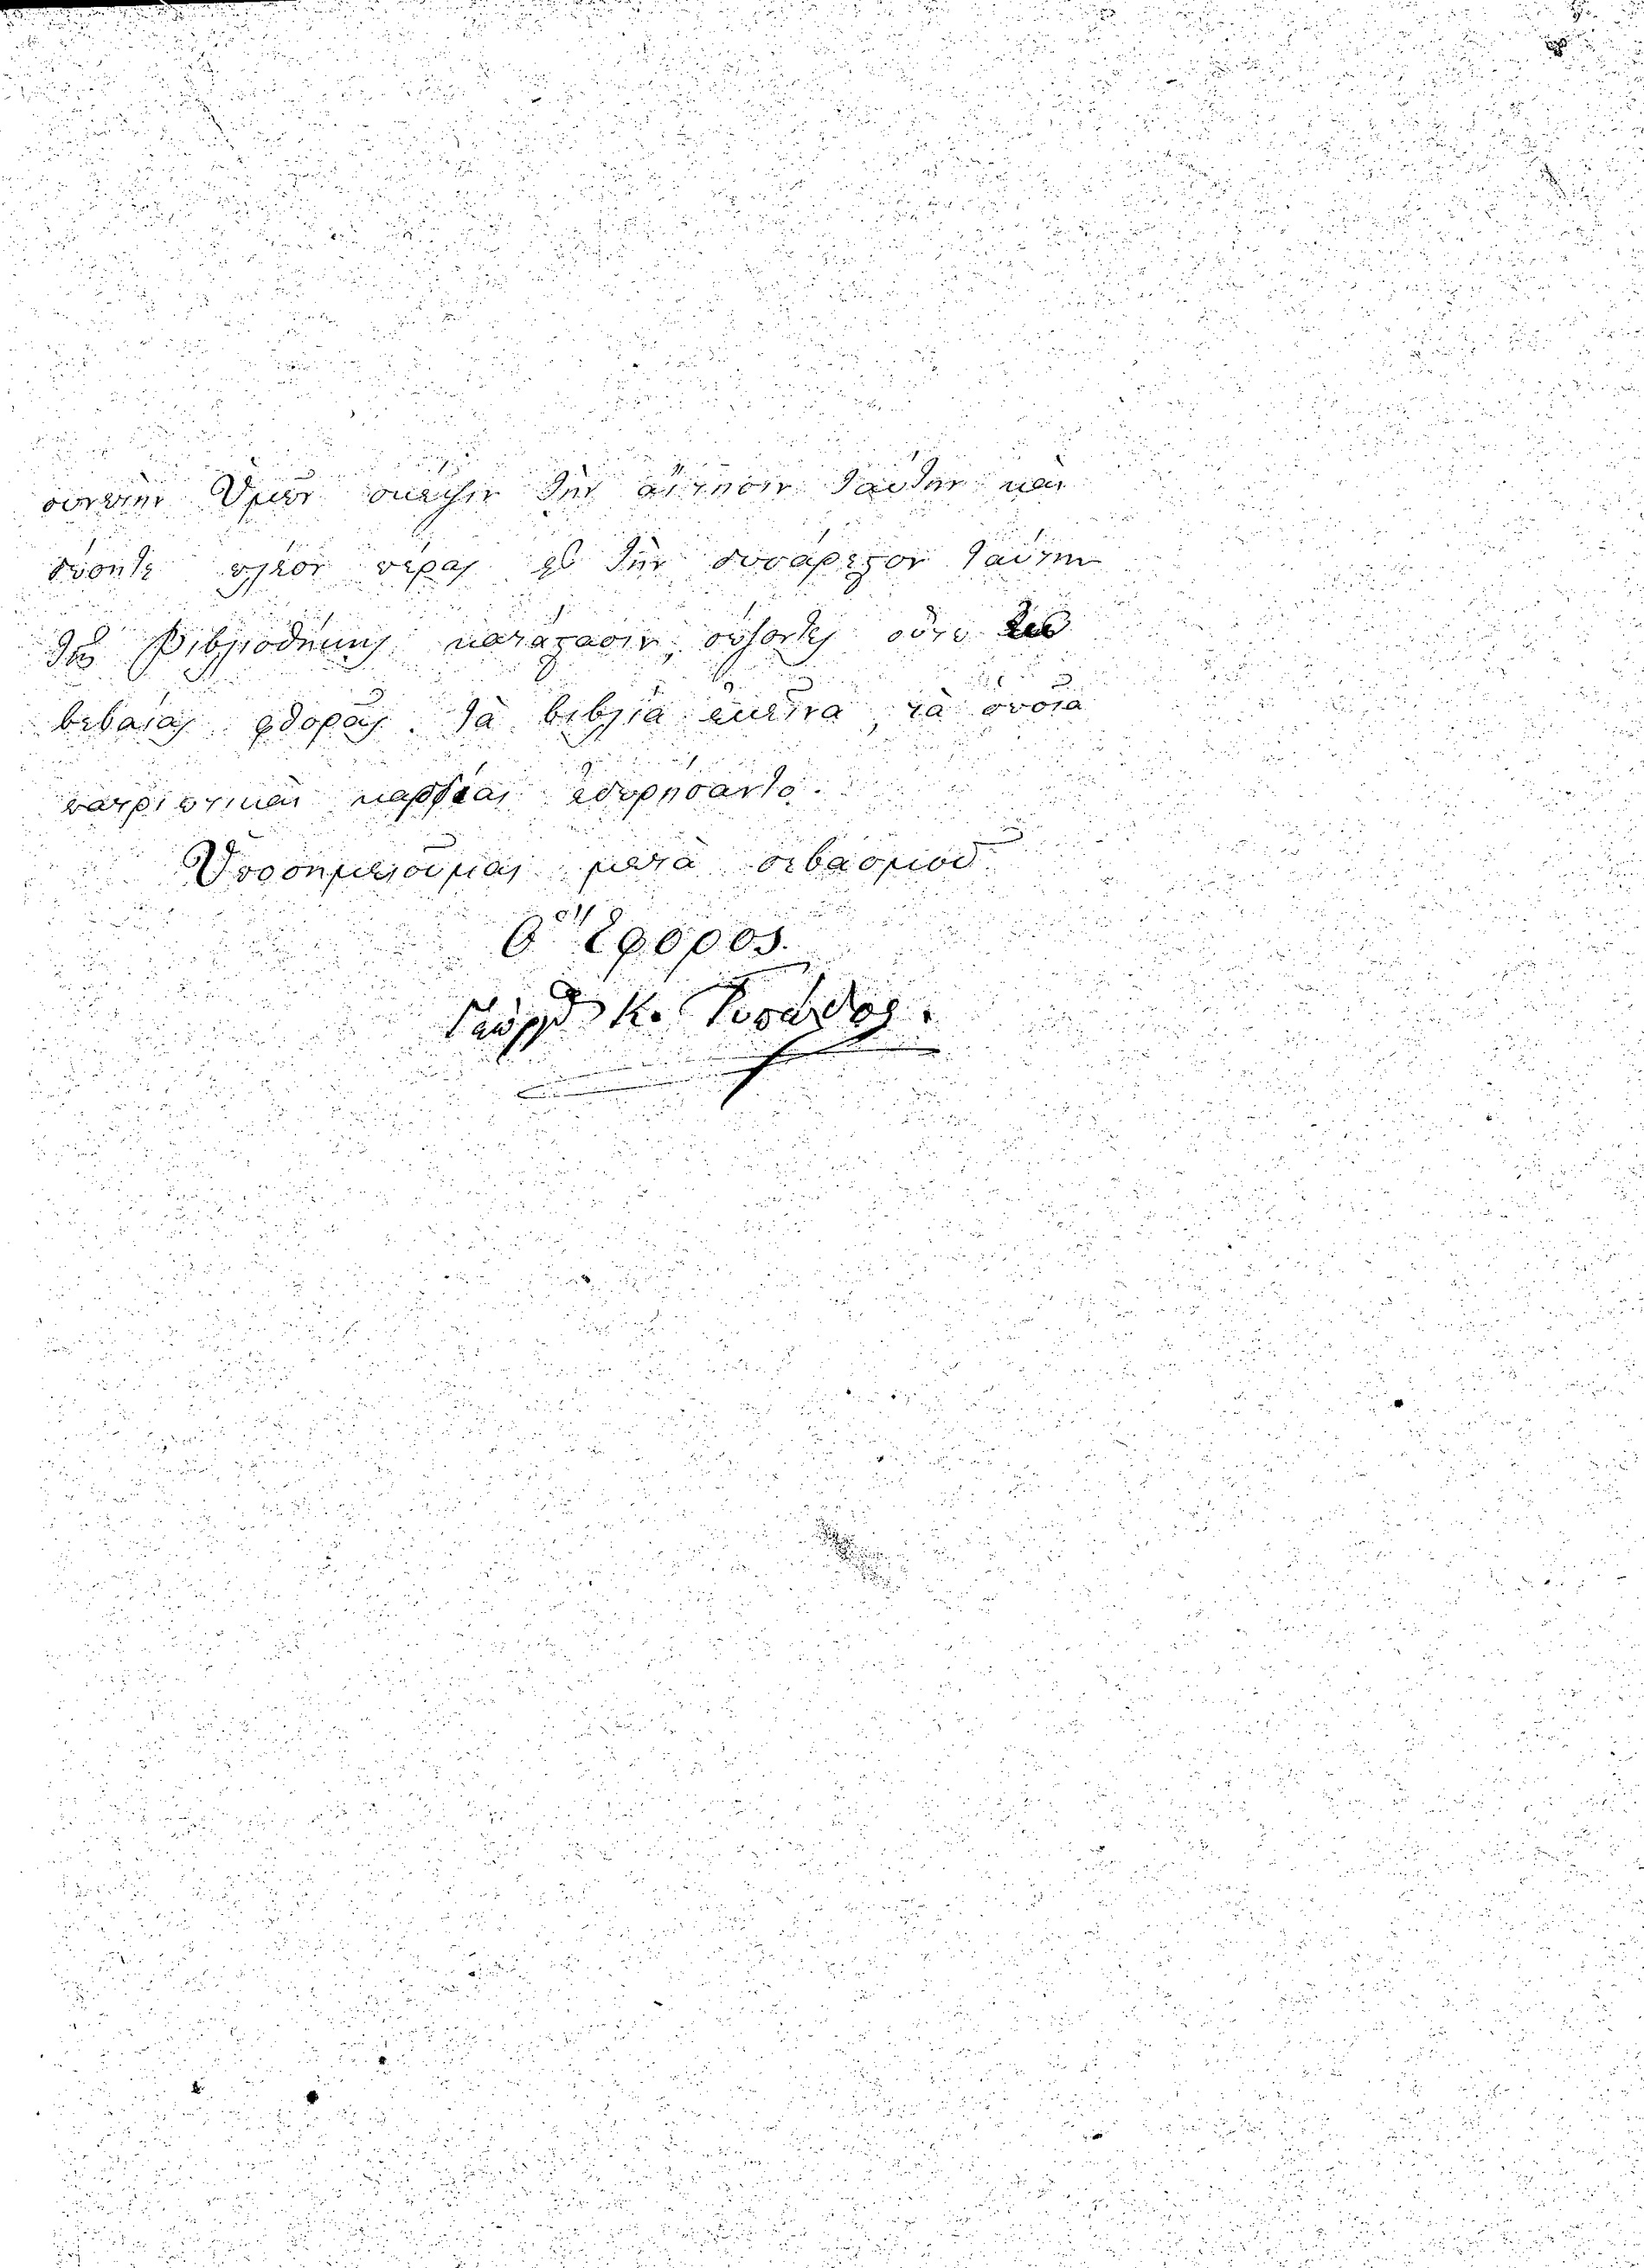 συνετὴν Ὑμῶν σκέψιν τὴν αἴτησιν ταύτην καὶ
δώσητε πλέον πέρας εἰς τὴν δυσάρεστον ταύτην
τῆς Βιβλιοθήκης κατάστασιν, σώζοντες οὕτω
βεβαίας φθορᾶς τὰ βιβλία ἐκεῖνα, τὰ ὁποῖα
πατριωτικαὶ καρδίαι ἐδωρήσαντο.
Ὑποσημειοῦμαι μετὰ σεβασμοῦ
Ὁ Ἔφορος.
Γεώργ Κ.